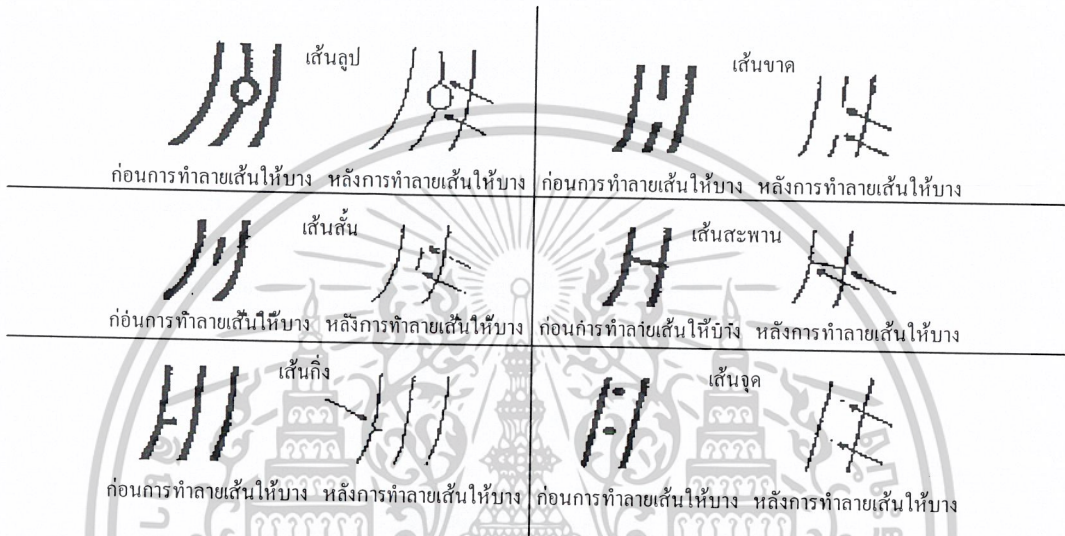 เส้นลูป เส้นขาด
ก่อนการทำลายเส้นให้บาง หลังการทำลายเส้นให้บาง ก่อนการทำลายเส้นให้บาง หลังการทำลายเส้นให้บาง
เส้นสั้น เส้นสะพาน
ก่อนการทำลายเส้นให้บาง หลังการทำลายเส้นให้บาง ก่อนการทำลายเส้นให้บาง หลังการทำลายเส้นให้บาง
เส้นกิ่ง เส้นจุด
ก่อนการทำลายเส้นให้บาง หลังการทำลายเส้นให้บาง ก่อนการทำลายเส้นให้บาง หลังการทำลายเส้นให้บาง